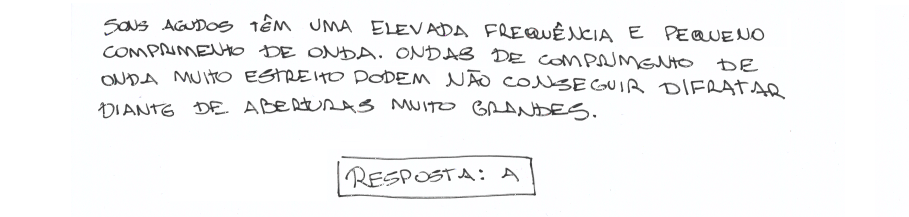 SONS AGUDOS TÊM UMA ELEVADA FREQUÊNCIA E PEQUENO
COMPRIMENTO DE ONDA. ONDAS DE COMPRIMENTO DE
ONDA MUITO ESTREITO PODEM NÃO CONSEGUIR DIFRATAR
DIANTE DE ABERTURAS MUITO GRANDES.
RESPOSTA: A